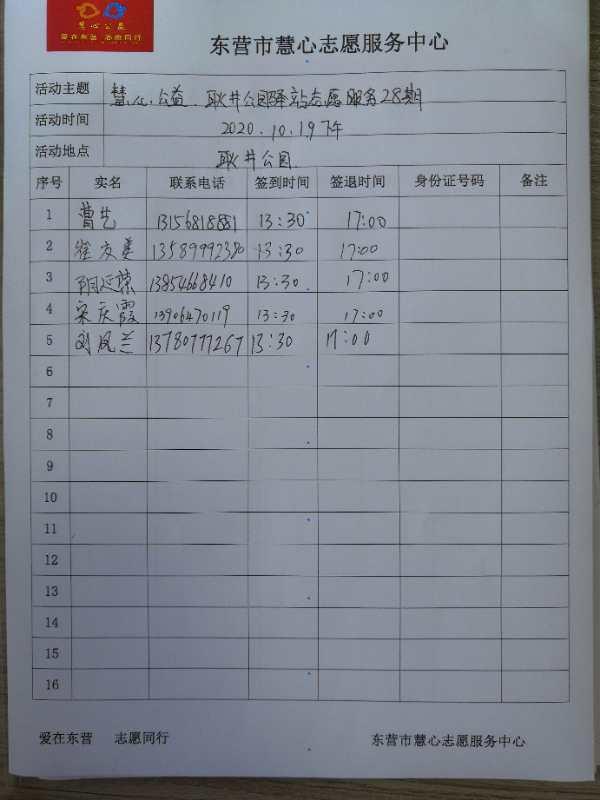 慧心公益
爱在东营 志愿同行
东营市慧心志愿服务中心
活动主题 慧心公益 耿井公园驿站志愿服务28期
活动时间 2020.10.19下午
活动地点 耿井公园
序号 实名 联系电话 签到时间 签退时间 身份证号码 备注
1 曹芝 13156818881 13:30 17:00
2 徐友姜 13589992380 13:30 17:00
3 延荣 13854668410 13:30 17:00
4 宋庆霞 13906470119 13:30 17:00
5 刘凤兰 13780777267 13:30 17:00
6
7
8
9
10
11
12
13
14
15
16
爱在东营 志愿同行 东营市慧心志愿服务中心